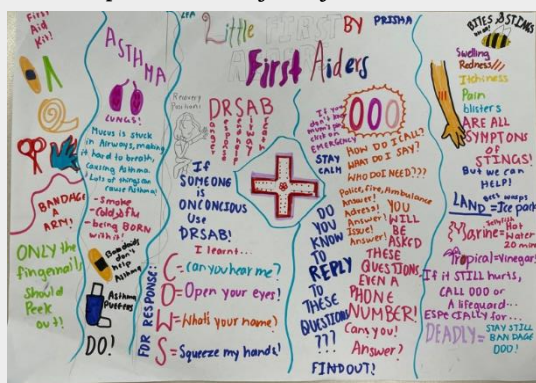 First
Aid
Kit!
BANDAGE
A
ARM!
ONLY the
fingernails
Should
Peek
out!
ASTHMA
LUNGS!
Mucus is stuck
in Airways, making
it hard to breath,
causing Asthma.
Lots of things can
cause Asthma!
-Smoke
-Cold&flu
-being BORN
with it!
Bandaids
don't
help
Asthma
Asthma
Puffers
DO!
Little FIRST
BY PRISHA
First Aiders
Recovery
Position:
DRSAB
Danger
Response
Send
Airway
If
SOMEONE
is
ONCONCIOUS
Use
DRSAB!
I learnt...
FOR RESPONSE:
C=can you hear me?
O=Open your eyes!
W=Whats your name?
S=Squeeze my hands!
If you
don't know
EMERGENCY
STAY
CALM
000
HOW DO I CALL?
WHAT DO I SAY?
WHO DO I NEED???
Police, fire, Ambulance
Answer!
Adress!
Answer!
Issue!
Answer!
YOU
WILL
BE
ASKED
THESE
QUESTIONS
EVEN A
PHONE
NUMBER!
Can you!
Answer?
DO
YOU
KNOW
TO
REPLY
TO
THESE
QUESTIONS
???
FINDOUT!
BITES & STINGS
Swelling
Redness
Itchiness
Pain
blisters
ARE ALL
SYMPTONS
OF
STINGS!
But we can
HELP!
LAND = Ice pack
Marine = Hot
Water
20 min
Tropical = Vinegar!
If it STILL hurts,
CALL 000 or
A lifeguard...
ESPECIALLY for...
DEADLY = STAY STILL
BANDAGE
000!